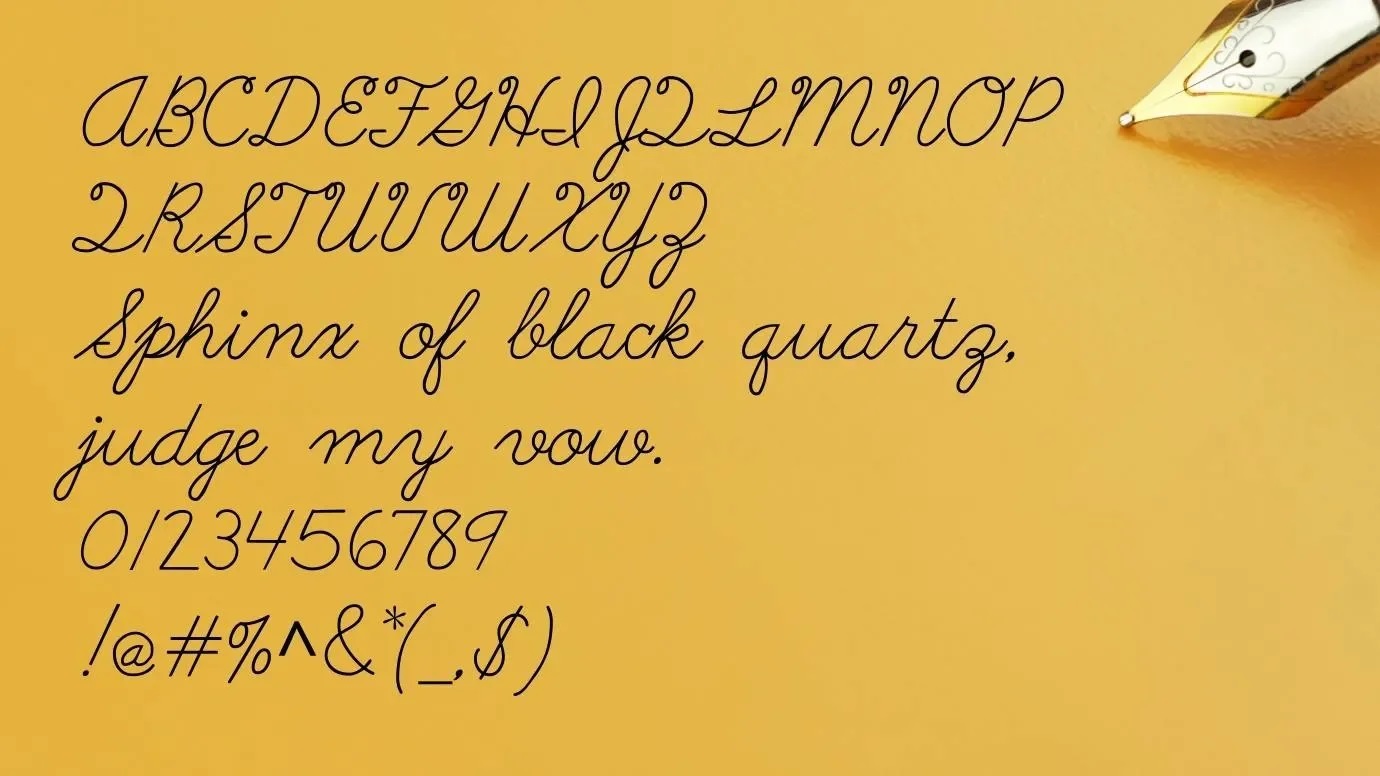 ABCDEFGHIJQLMNOP
QRSTUVWXYZ
Sphinx of black quartz,
judge my vow.
0123456789
!@#%^&*(_,$)